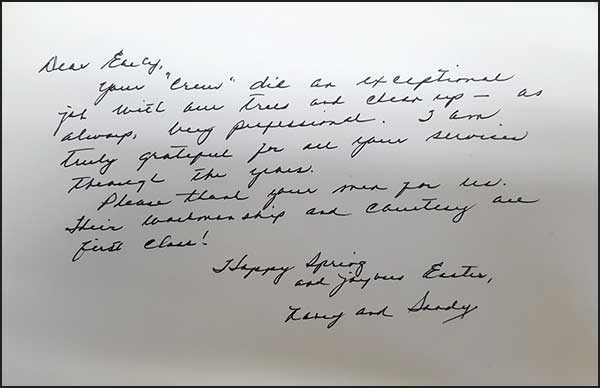 Dear
Your "Crew" did an exceptional
job with our trees and clean up – as
always, very professional. I am
truly grateful for all your services
through the years.
Please thank your men for us.
Their workmanship and courtesy are
first class!
Happy Spring
and joyous Easter,
and Sandy